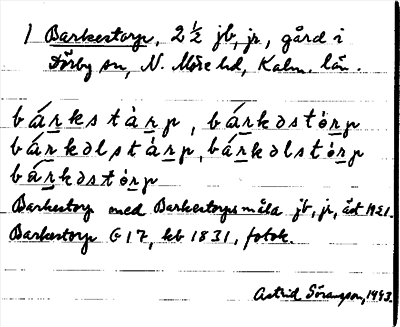 1 Barkestorp, 2 1/2 jb, jr, gård i
Dörby sn, N. Möre hd, Kalm. län.
bárkstàrp, bárkəstòrp
bárkəlstàrp, bárkəlstòrp
bárkəstòrp
Barkestorp med Barkestorps måla jb, jr, åst 1921.
Barkestorp G 17, kb 1831, fotok.
Astrid 1943.